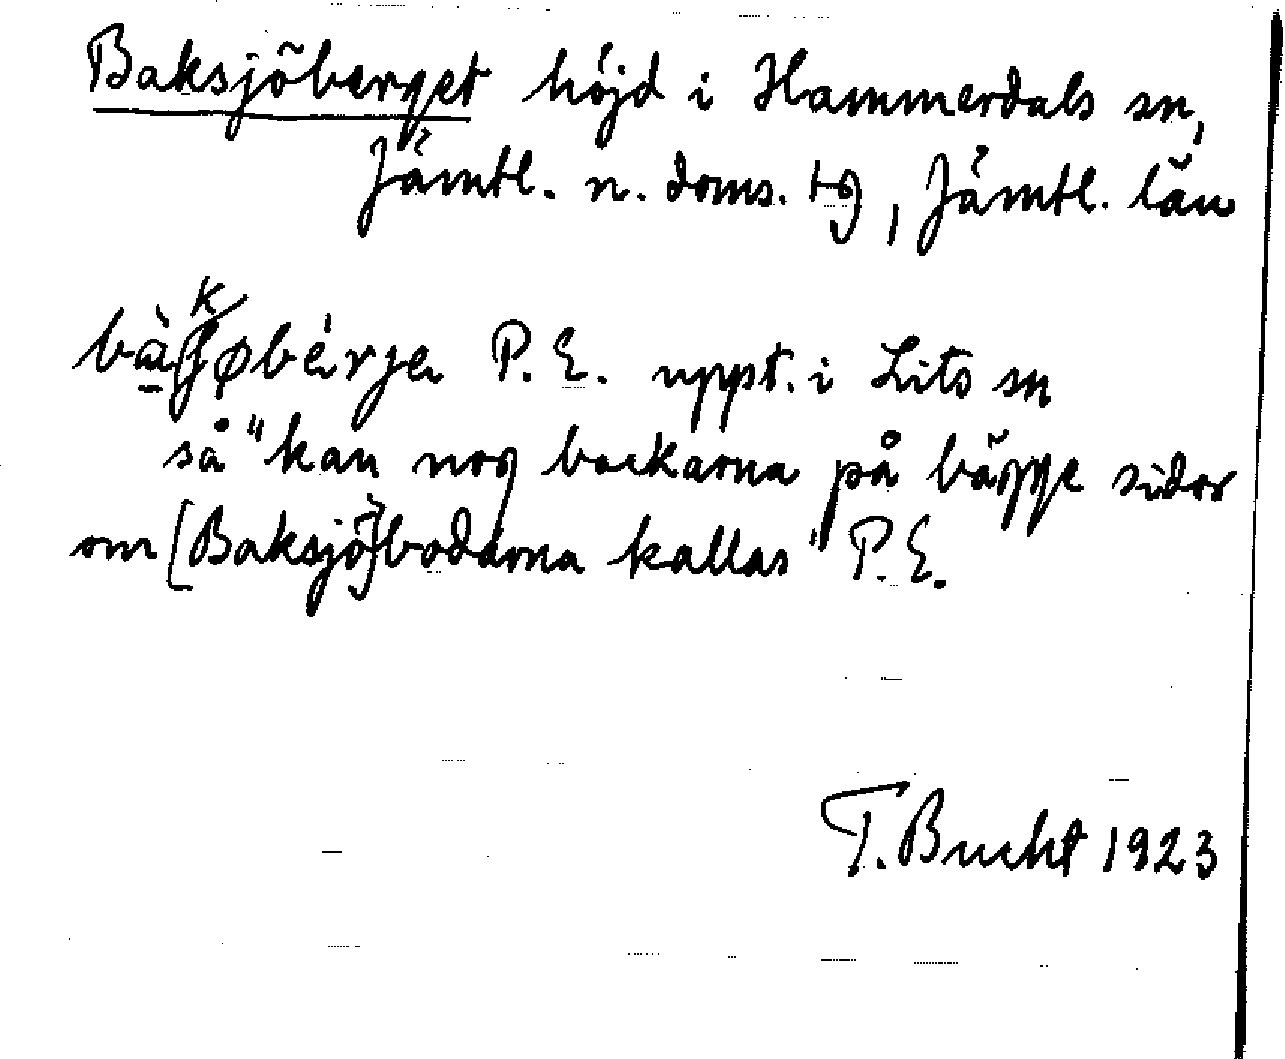 Baksjöberget höjd i Hammerdals sn,
Jämtl. n. doms. tg, Jämtl. län
P. E. uppt. i Lits sn
så "kan nog backarna på bägge sidor
om [Baksjö]bodarna kallas" P. E.
T. Bucht 1923